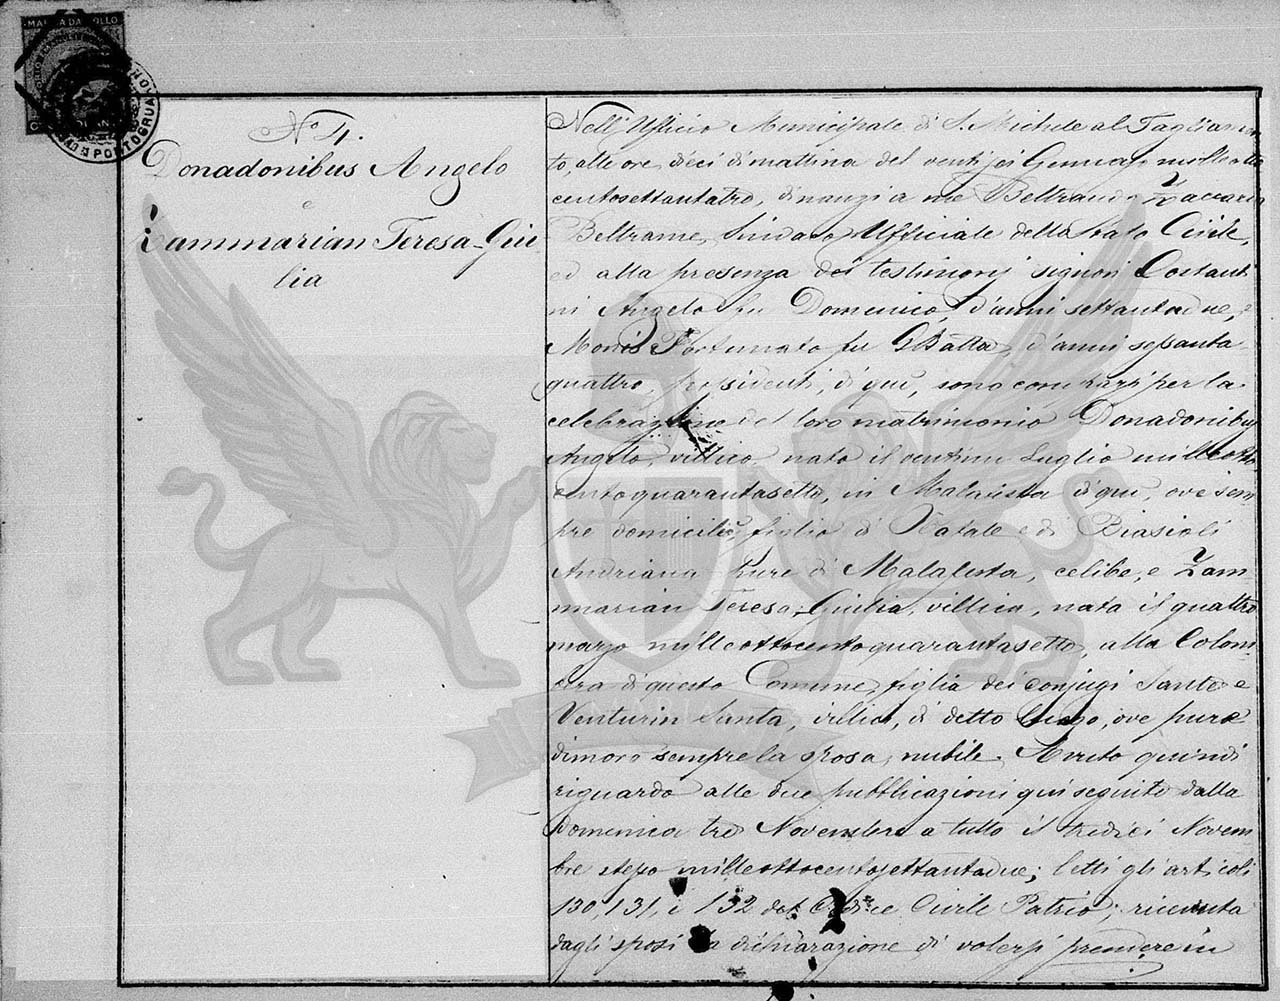 MARCA DA BOLLO
PORTOGRUARO
N° 4.
Donadonibus Angelo
e
Zammarian Teresa-Giu
lia
Nell' Uficio Municipale di S. Michele al Tagliamen
to, alle ore dieci di mattina del ventisei Gennajo milleotto
centosettantatre, dinanzi a me Beltrando Zaccaria
Beltrame, Sindaco Ufficiale dello Stato Civile,
ed alla presenza dei testimonj signori Costanti
ni Angelo fu Domenico, d'anni settantadue, e
Moris Fortunato fu GBatta, d'anni sessanta
quattro, residenti, di quì, sono comparsi per la
celebrazione del loro matrimonio Donadonibus
Angelo, villico, nato il ventuno Luglio milleotto
centoquarantasette, in Malafesta di quì, ove sem
pre domiciliò, figlio di Natale e di Biasioli
Andriana pure di Malafesta, celibe, e Zam
marian Teresa-Giulia, villica, nata il quattro
marzo milleottocentoquarantasette, alla Colom
bara di questo Comune, figlia dei conjugi Sante e
Venturin Santa, villici, di detto luogo, ove pure
dimorò sempre la sposa, nubile. Avuto quindi
riguardo alle due pubblicazioni quì seguite dalla
Domenica tre Novembre a tutto il tredici Novem
bre stesso milleottocentosettantadue; letti gli articoli
130, 131, e 132 del Codice Civile Patrio; ricevuta
dagli sposi la dichiarazione di volersi prendere in